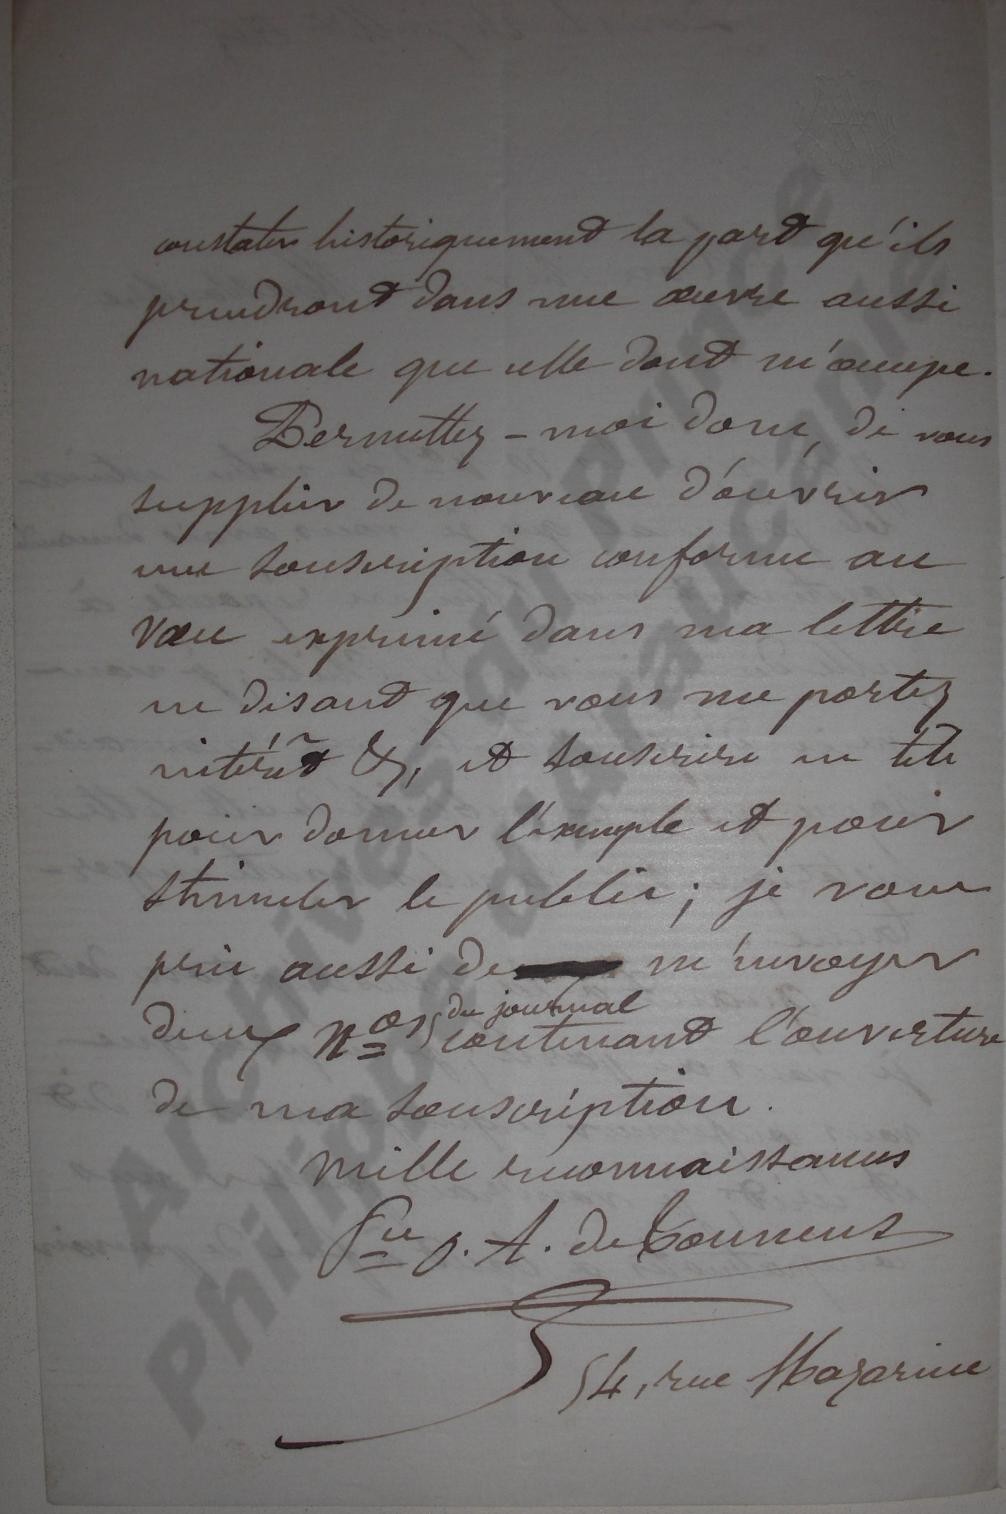 constater historiquement la part qu'ils
prendront dans une œuvre aussi
nationale que celle dont m'occupe.
Permettez-moi donc, de vous
supplier de nouveau d'ouvrir
une souscription conforme au
vœu exprimé dans ma lettre
en disant que vous me portez
intérêt &, et souscrire en tête
pour donner l'exemple et pour
stimuler le public ; je vous
prie aussi de m'envoyer
deux Nos du journal contenant l'ouverture
de ma souscription.
Mille reconnaissances
Pce O. A. de Tounens
54, rue Mazarine
Archives du Prince
Philippe d'Araucanie